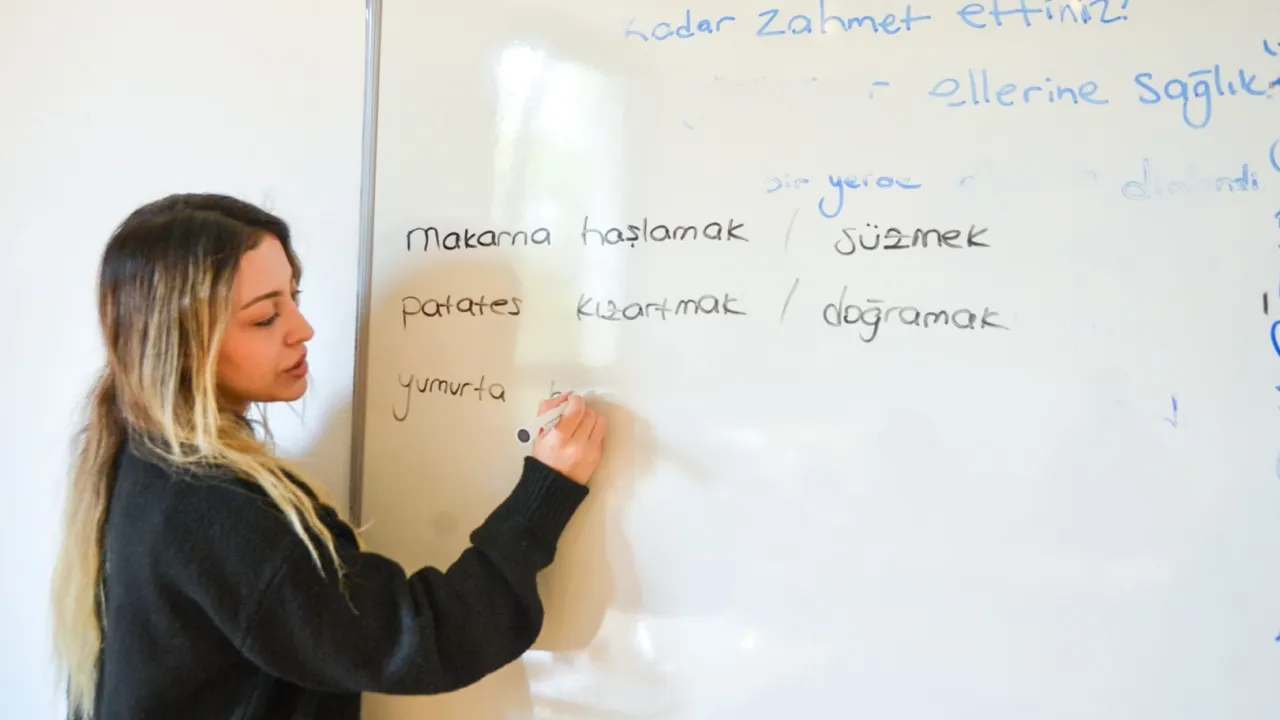 kadar zahmet ettiniz!
ellerine sağlık
bir yerde
makarna haşlamak / süzmek
patates kızartmak / doğramak
yumurta